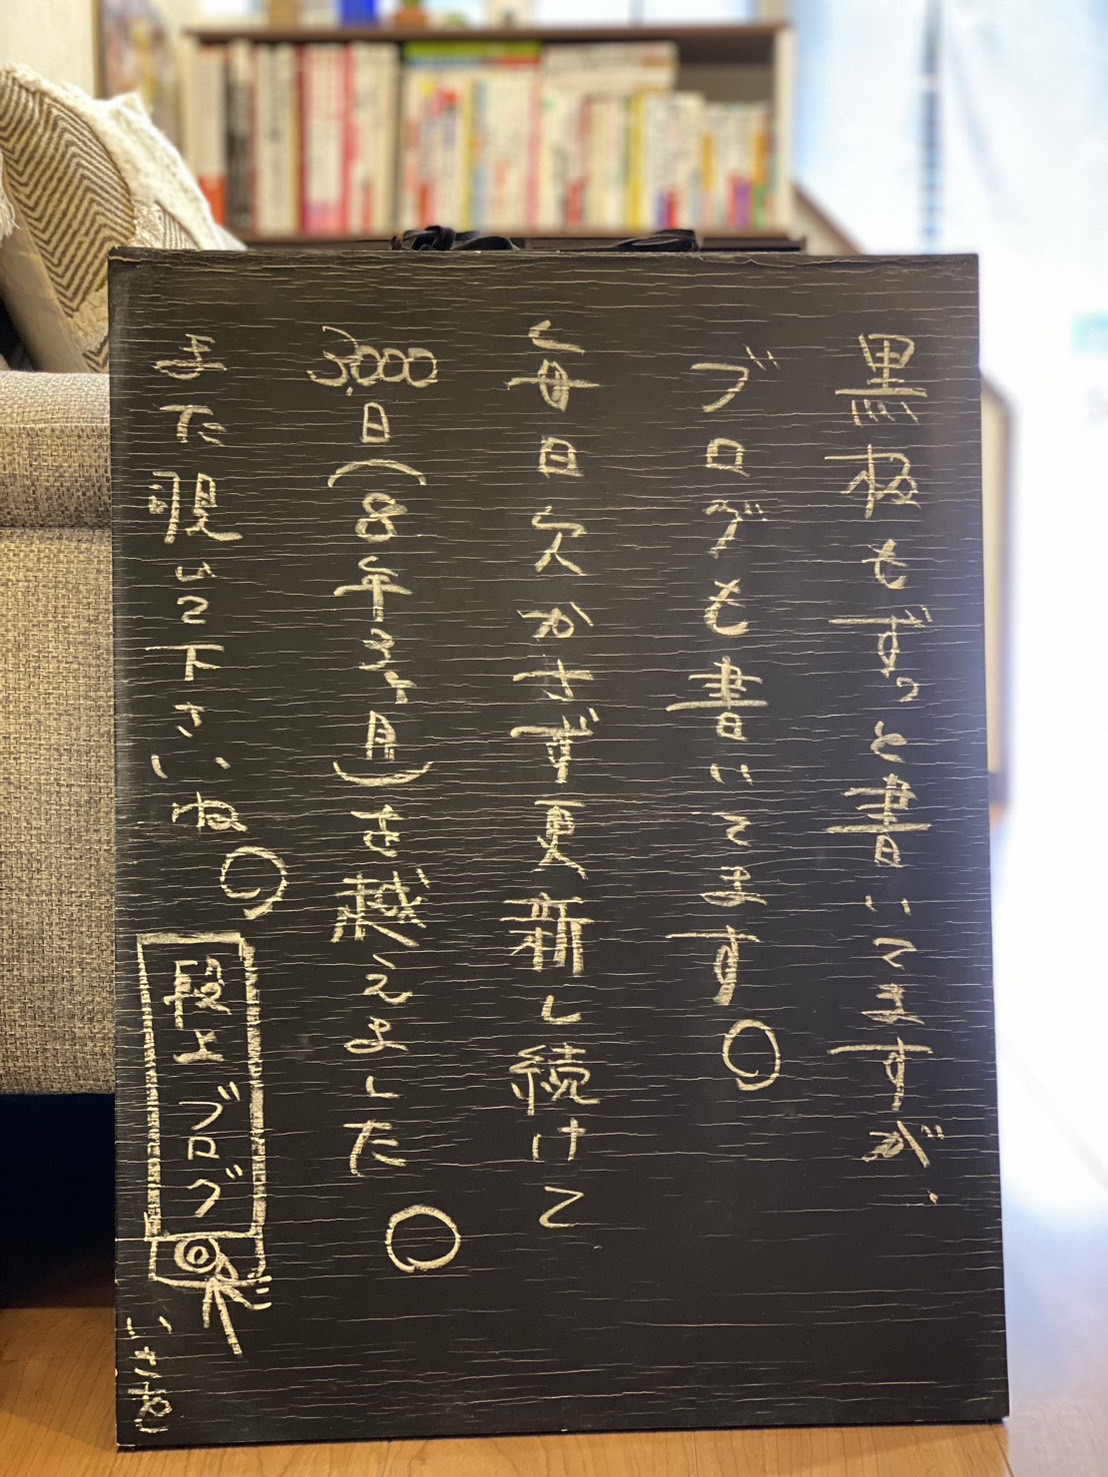 黒板もずっと書いてますが、
ブログも書いてます。
毎日欠かさず更新し続けて
3,000日(8年3ヶ月)を越えました。
また覗いて下さいね。
段上ブログ